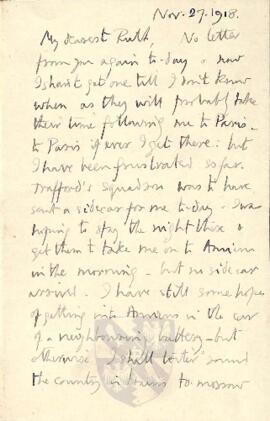 Nov. 27. 1918.
My dearest Ruth, No letter
from you again to-day & now
I shan't get one till I don't know
when as they will probably take
their time following me to Paris -
to Paris if ever I get there: but
I have been frustrated so far.
Trafford's Squadron was to have
sent a sidecar for me to-day - I was
hoping to stay the night there &
get them to take me on to Amiens
in the morning - but no sidecar
arrived. I have still some hopes
of getting into Amiens in the car
of a neighbouring battery - but
otherwise I shall round
the country in trains to-morrow